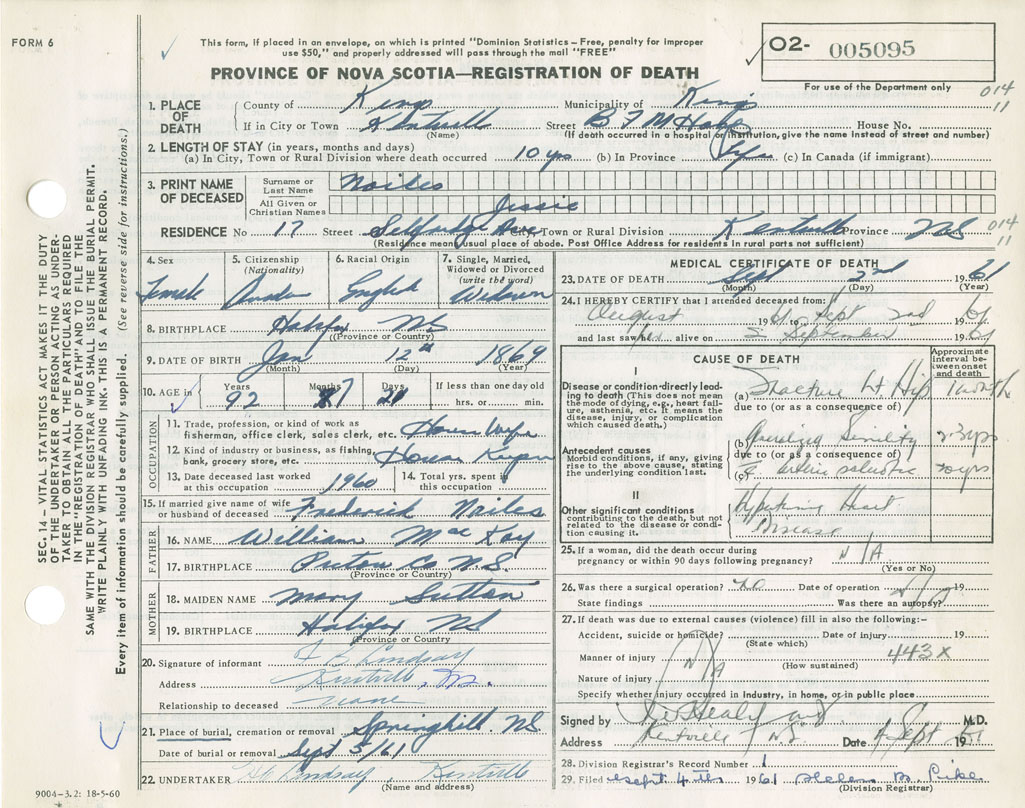 FORM 6
This form, if placed in an envelope, on which is printed "Dominion Statistics – Free, penalty for improper
use $50," and properly addressed will pass through the mail "FREE"
PROVINCE OF NOVA SCOTIA—REGISTRATION OF DEATH
O2- 005095
For use of the Department only
014
11
1. PLACE OF DEATH
County of Kings Municipality of Kings
If in City or Town Kentville Street B F M House No.
(Name) (If death occurred in a hospital or institution, give the name instead of street and number)
2. LENGTH OF STAY (in years, months and days)
(a) In City, Town or Rural Division where death occurred 10 yrs (b) In Province Life (c) In Canada (if immigrant)
3. PRINT NAME OF DECEASED
Surname or Last Name Noiles
All Given or Christian Names Jessie
RESIDENCE No 17 Street Ave City, Town or Rural Division Kentville Province NS
014
11
(Residence means usual place of abode. Post Office Address for residents in rural parts not sufficient)
4. Sex Female
5. Citizenship (Nationality) Canadian
6. Racial Origin English
7. Single, Married, Widowed or Divorced (write the word) Widown
8. BIRTHPLACE Halifax NS
(Province or Country)
9. DATE OF BIRTH Jan 12th 1869
(Month) (Day) (Year)
10. AGE in Years 92 Months 7 Days 21 If less than one day old hrs. or min.
OCCUPATION
11. Trade, profession, or kind of work as fisherman, office clerk, sales clerk, etc. House Wife
12. Kind of industry or business, as fishing, bank, grocery store, etc. House Keeper
13. Date deceased last worked at this occupation 1960
14. Total yrs. spent in this occupation
15. If married give name of wife or husband of deceased Frederick Noiles
FATHER
16. NAME William MacKay
17. BIRTHPLACE Pictou Co N.S.
(Province or Country)
MOTHER
18. MAIDEN NAME Mary Sutton
19. BIRTHPLACE Halifax NS
(Province or Country
20. Signature of informant Lindsay
Address Kentville, N.S.
Relationship to deceased none
21. Place of burial, cremation or removal Springhill NS
Date of burial or removal Sept 5/61
22. UNDERTAKER Lindsay Kentville
(Name and address)
9004-3.2: 18-5-60
MEDICAL CERTIFICATE OF DEATH
23. DATE OF DEATH Sept 2nd 1961
(Month) (Day) (Year)
24. I HEREBY CERTIFY that I attended deceased from:
August 1961 to Sept 2nd 1961
and last saw her alive on 2 September 1961
CAUSE OF DEATH
Approximate interval between onset and death
I
Disease or condition directly leading to death (This does not mean the mode of dying, e.g., heart failure, asthenia, etc. It means the disease, injury, or complication which caused death.)
(a) Fracture Lt Hip 1 month
due to (or as a consequence of)
Antecedent causes
Morbid conditions, if any, giving rise to the above cause, stating the underlying condition last.
(b) Senility 2-3 yrs
due to (or as a consequence of)
(c)
II
Other significant conditions contributing to the death, but not related to the disease or condition causing it.
Heart Disease
25. If a woman, did the death occur during pregnancy or within 90 days following pregnancy? N/A
(Yes or No)
26. Was there a surgical operation? No Date of operation 19
State findings Was there an autopsy?
27. If death was due to external causes (violence) fill in also the following:-
Accident, suicide or homicide? Date of injury 19
(State which)
Manner of injury N/A 443X
(How sustained)
Nature of injury
Specify whether injury occurred in Industry, in home, or in public place
Signed by Healy M.D.
Address Kentville N.S. Date 4 Sept 1961
28. Division Registrar's Record Number
29. Filed Sept 4th 1961 Helen M. Pike
(Division Registrar)
SEC. 14 – VITAL STATISTICS ACT MAKES IT THE DUTY
OF THE UNDERTAKER OR PERSON ACTING AS UNDER-
TAKER TO OBTAIN ALL THE PARTICULARS REQUIRED
IN THE "REGISTRATION OF DEATH" AND TO FILE THE
SAME WITH THE DIVISION REGISTRAR WHO SHALL ISSUE THE BURIAL PERMIT.
WRITE PLAINLY WITH UNFADING INK. THIS IS A PERMANENT RECORD.
Every item of information should be carefully supplied. (See reverse side for instructions.)